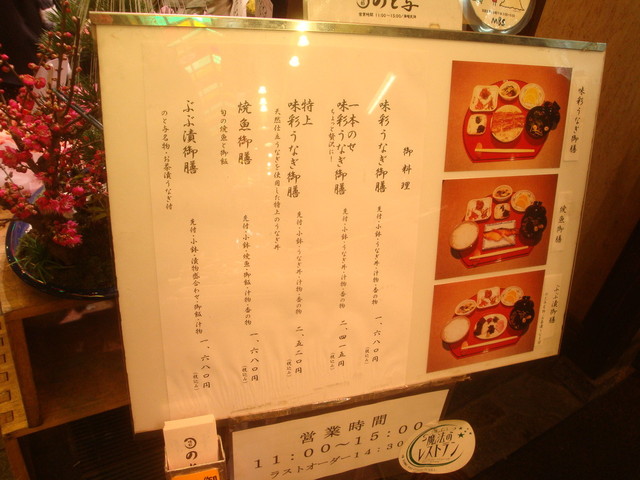 のと与
営業時間 11:00~15:00
御料理
味彩うなぎ御膳
先付・小鉢・うなぎ丼・汁物・香の物
一、六八〇円
(税込み)
一本のせ
味彩うなぎ御膳
ちょっと贅沢に!
先付・小鉢・うなぎ丼・汁物・香の物
二、四一五円
(税込み)
特上
味彩うなぎ御膳
天然仕立うなぎを使用した特上のうなぎ丼
先付・小鉢・うなぎ丼・汁物・香の物
二、五二〇円
(税込み)
焼魚御膳
旬の焼魚と御飯
先付・小鉢・焼魚・御飯・汁物・香の物
一、六八〇円
(税込み)
ぶぶ漬御膳
のと与名物・お茶漬うなぎ付
先付・小鉢・漬物盛合わせ・御飯・汁物
一、六八〇円
(税込み)
味彩うなぎ御膳
焼魚御膳
ぶぶ漬御膳
営業時間
11:00~15:00
ラストオーダー14:30
魔法の
レストラン
のと